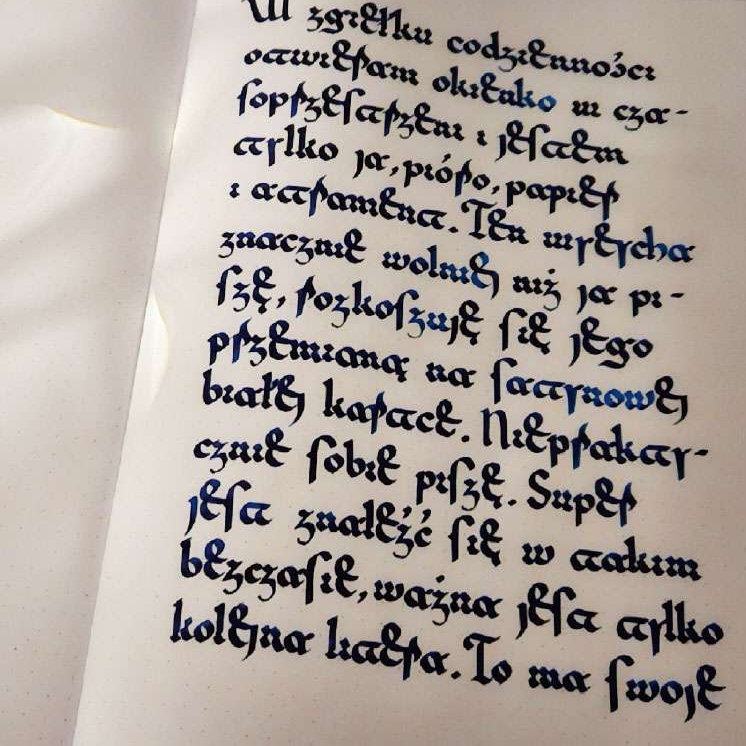 W zgiełku codzienności
otwieram okienko w cza-
soprzestrzeni i jestem
tylko ja, pióro, papier
i atrament. Ten wysycha
znacznie wolniej niż ja pi-
szę, rozkoszuję się jego
przemianą na satynowej
białej kartce. Niepraktycz-
cznie sobie piszę. Super
jest znaleźć się w takim
bezczasie, ważna jest tylko
kolejna litera. To ma swoje